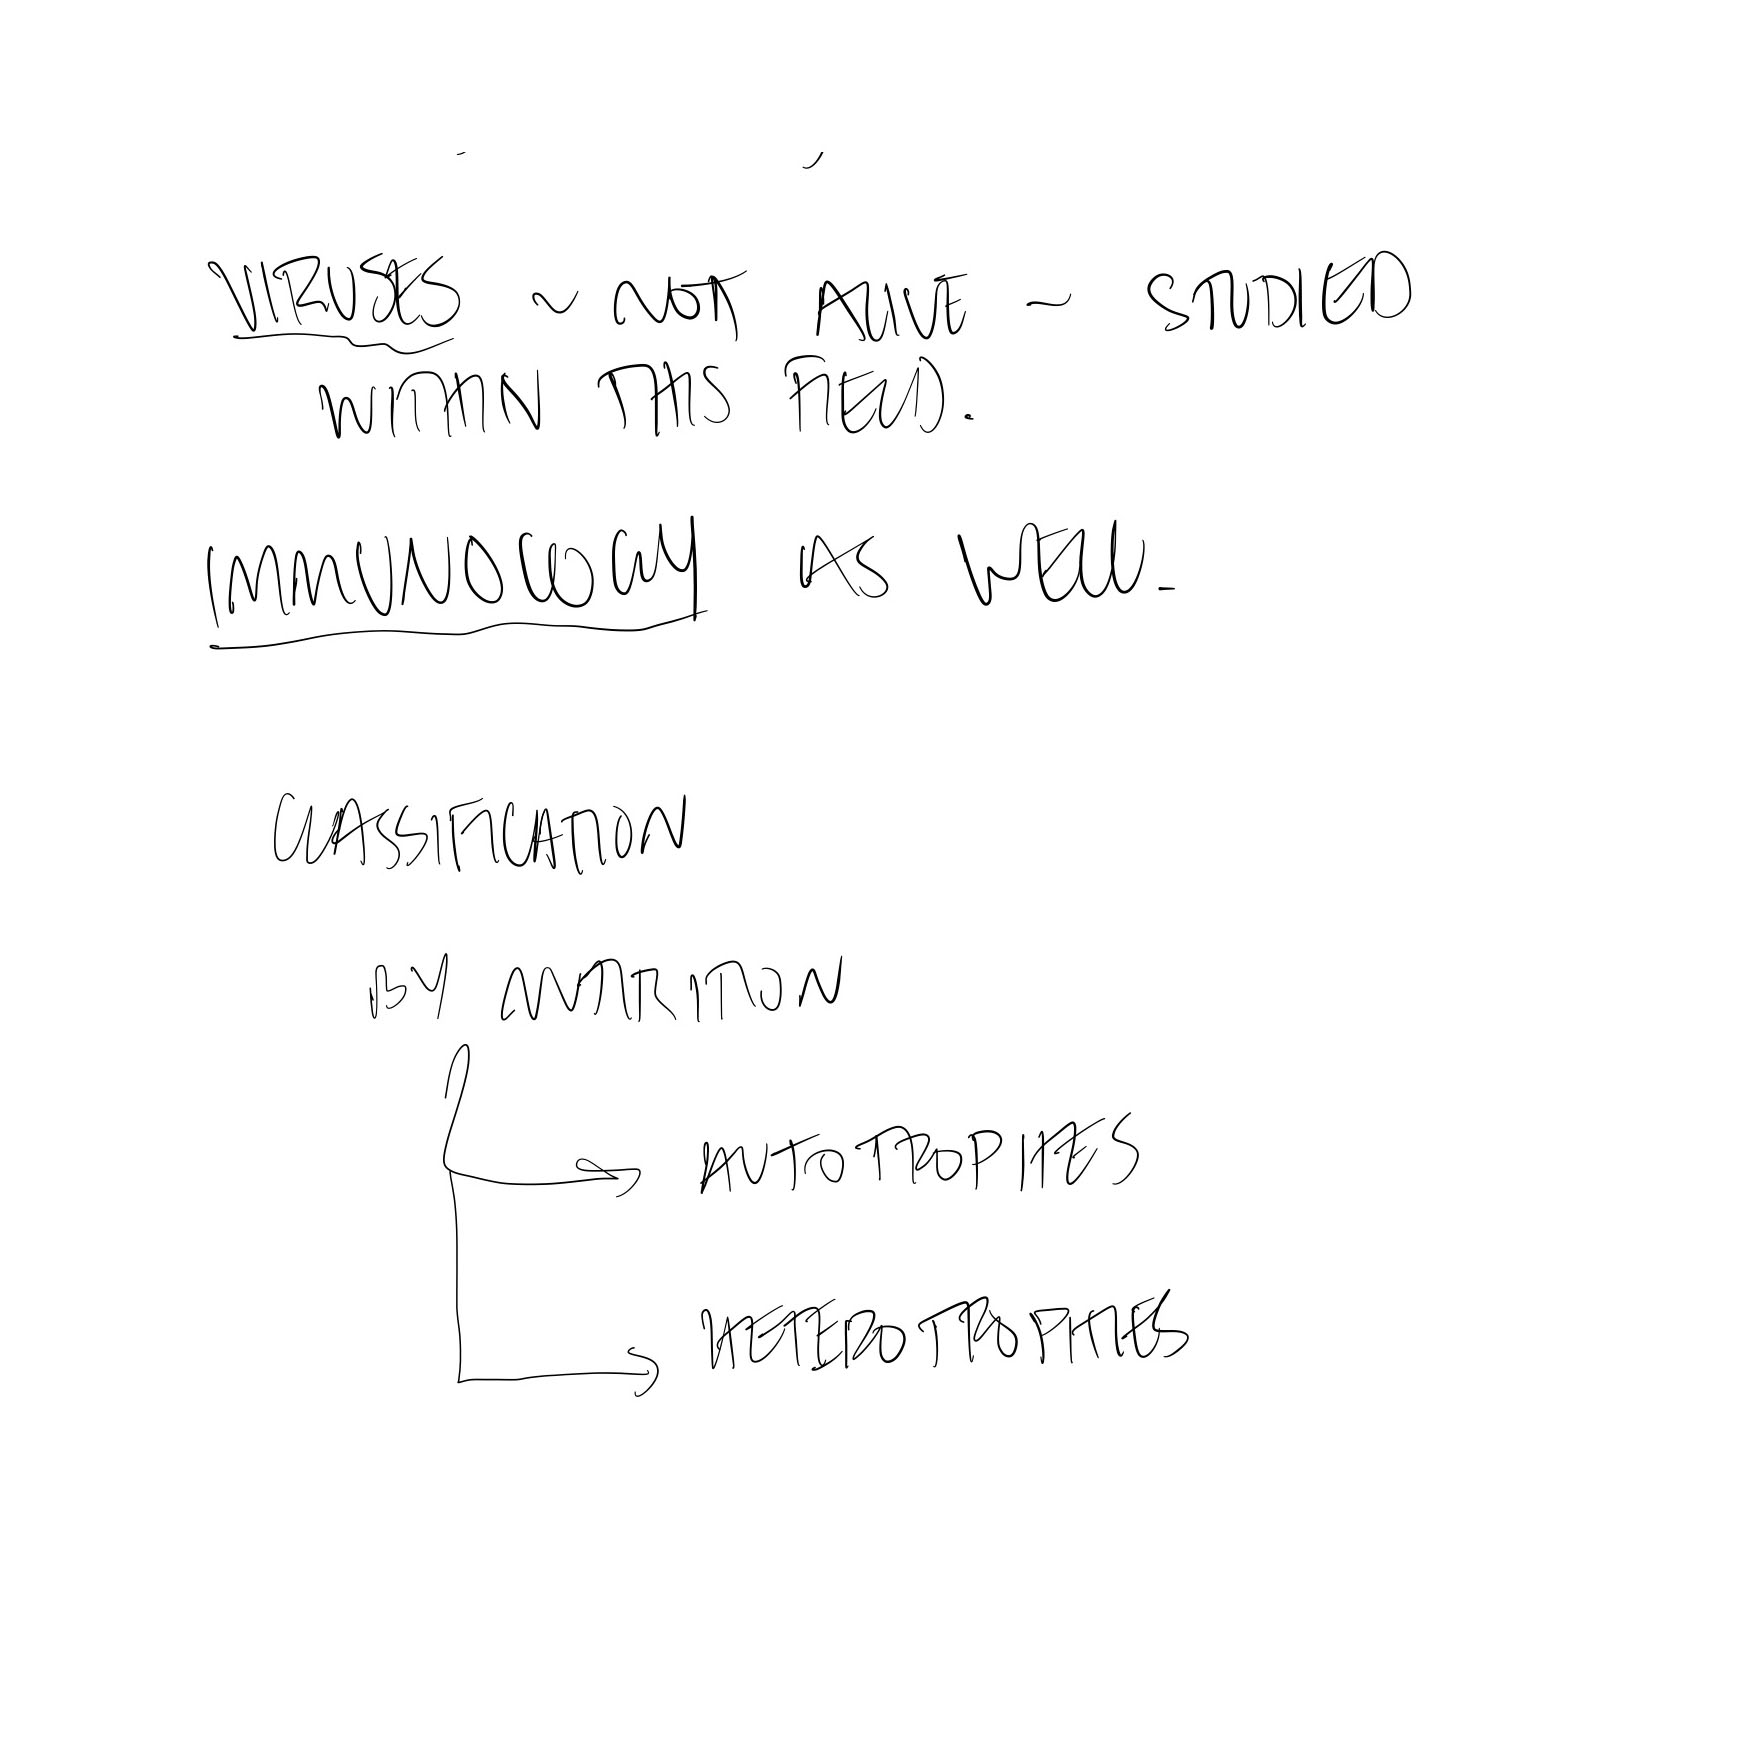 VIRUSES ~ NOT ALIVE ~ STUDIED
WITHIN THIS FIELD.
IMMUNOLOGY AS WELL.
CLASSIFICATION
BY NUTRITION
AUTOTROPHES
HETEROTROPHES